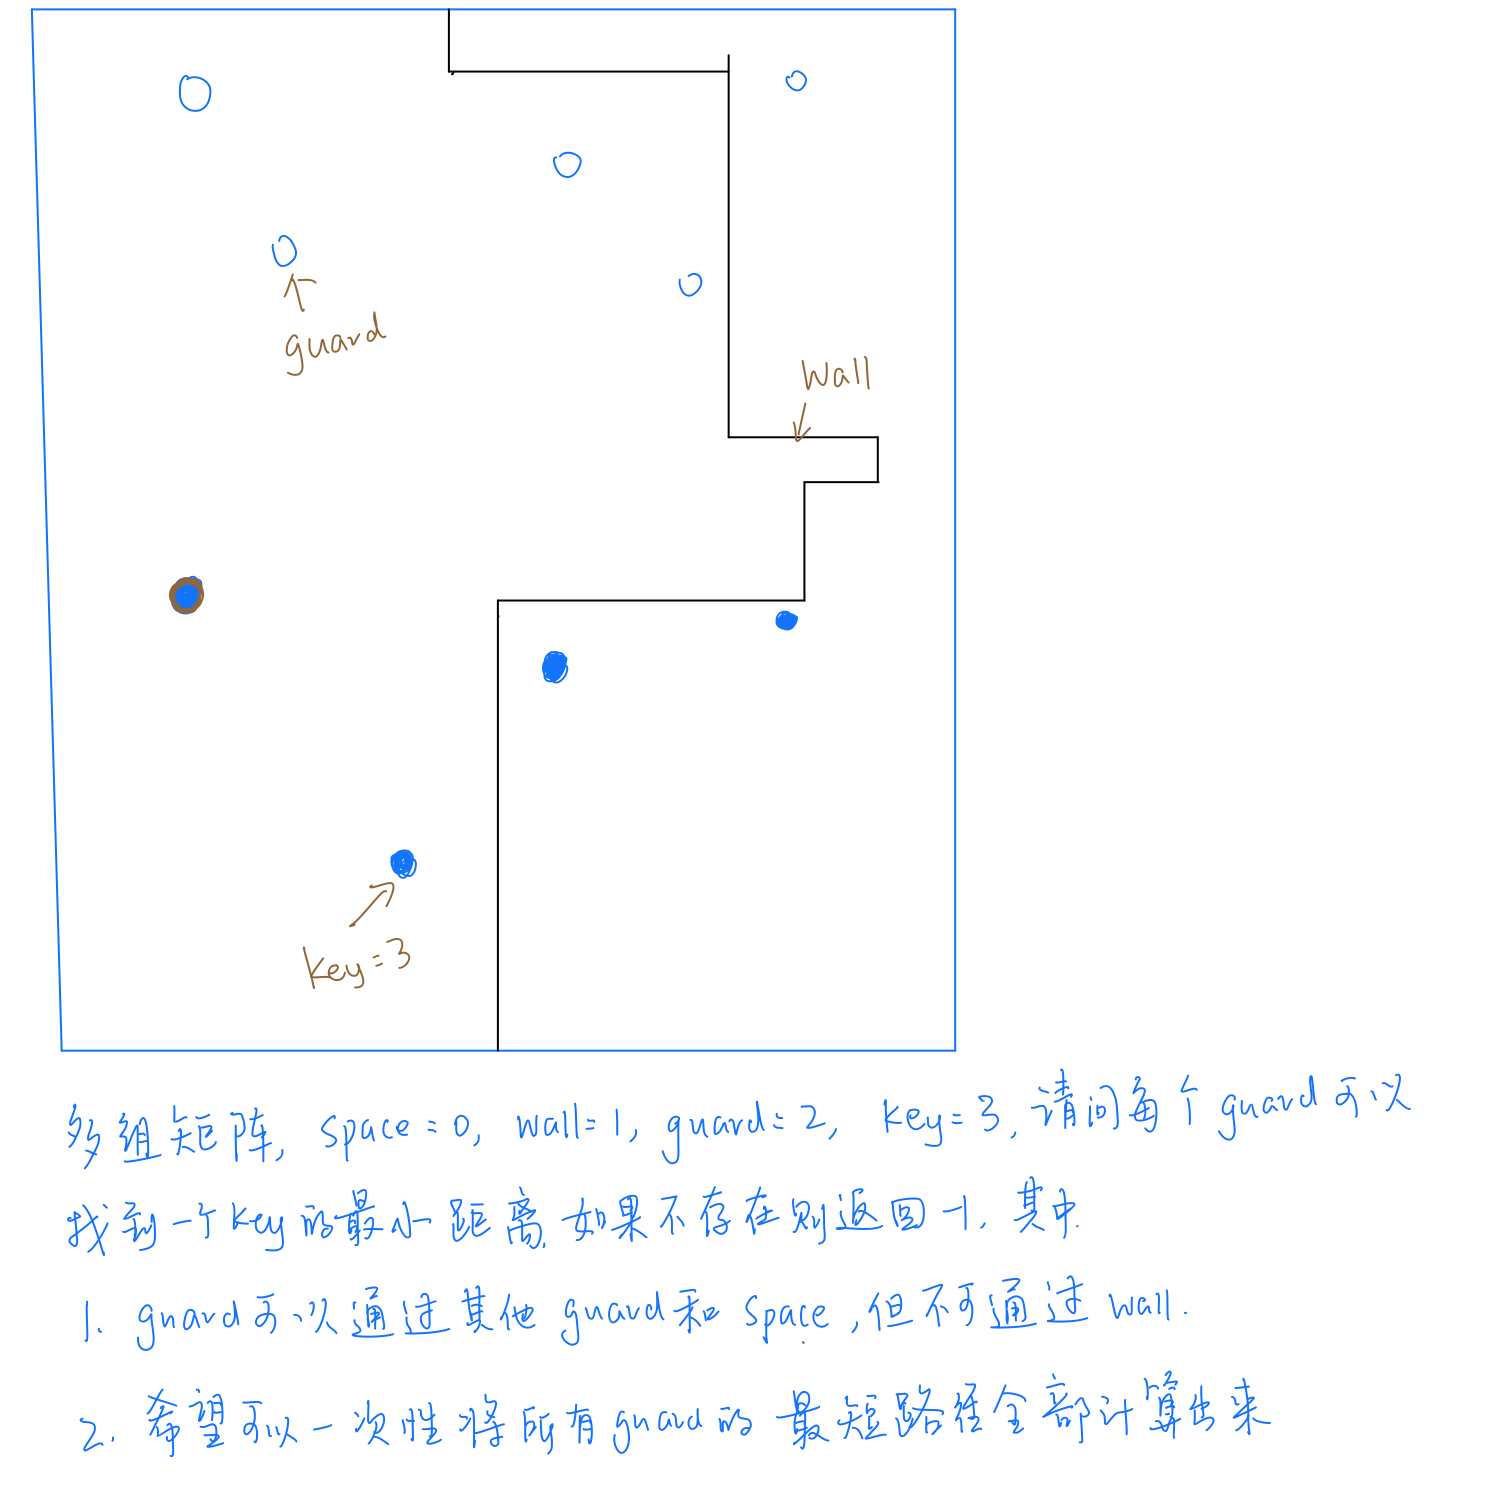 guard
Wall
key=3
多组矩阵, space=0, wall=1, guard=2, key=3, 请问每个guard可以
找到一个key的最小距离, 如果不存在则返回-1. 其中.
1. guard可以通过其他guard和space,但不可通过wall.
2. 希望可以一次性将所有guard的最短路径全部计算出来